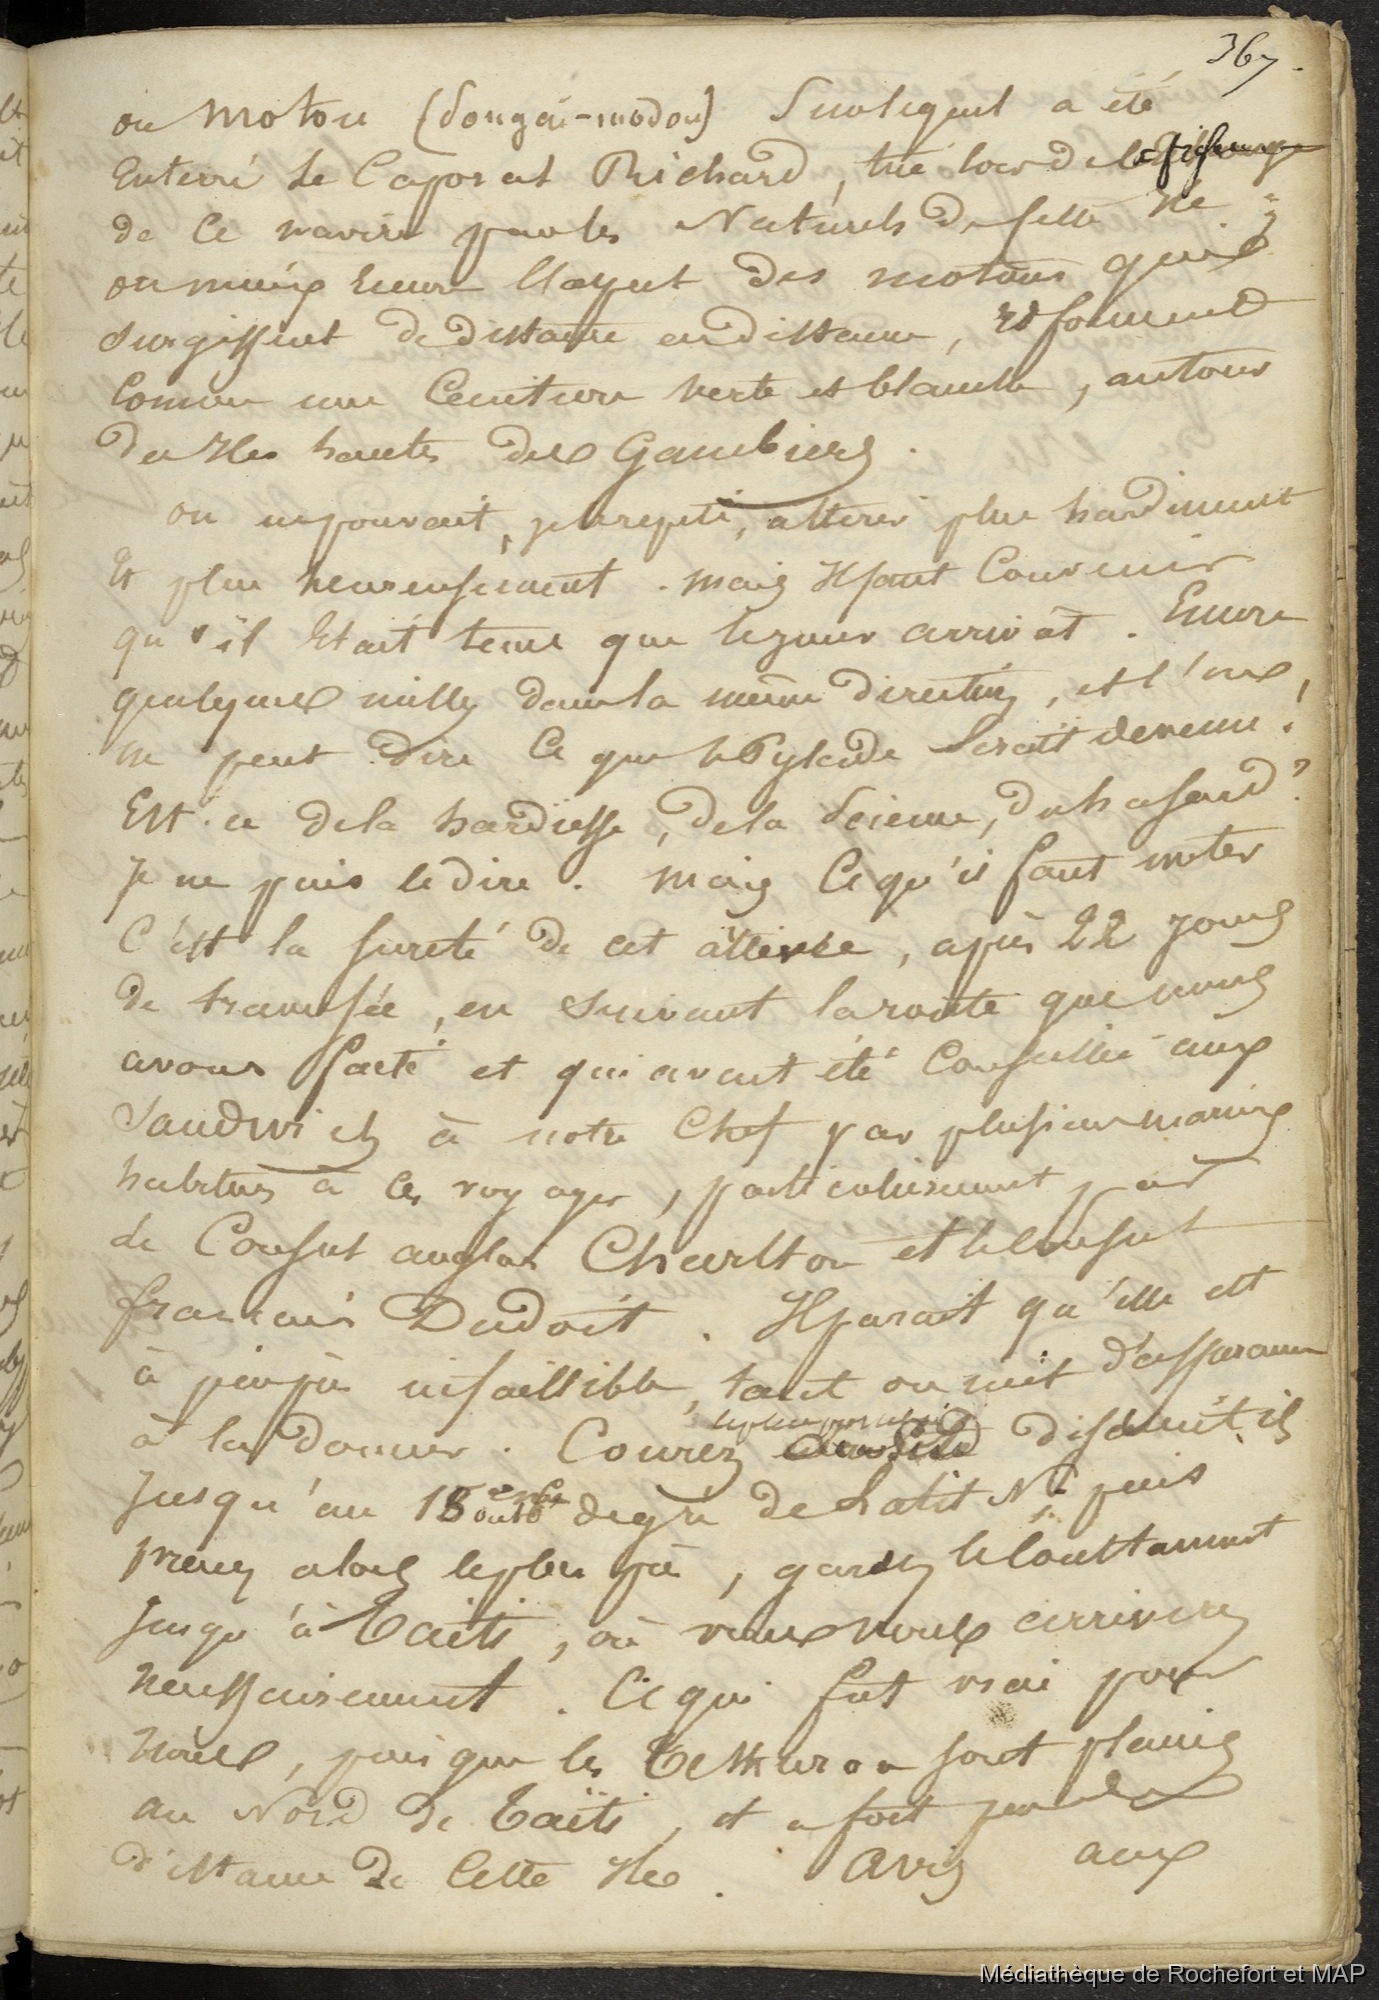 367.
ou Motou (Dongai-modou) Surlequel a été
Enterré Le Caporal Richard, tué lors de
de Ce navire parles Naturels de Cette Ile;
on mieux Encore la plupart des motous qui
Surgissent de distance en distance, et forment
Comme une Ceinture verte et blanche, autour
des Iles hautes des Gambiers.
on ne pouvait, je le repete, atterir plus hardiment
Et plus heureusement. mais Il faut Convenir
qu'il Etait tems que lejour arrivât. Encore
quelques milles dans la même direction, et l'on
ne peut dire Ce que la Pylade Serait devenue!
Est-ce dela hardiesse, dela Science, du hasard?
Je ne puis ledire. mais Ce qu'il faut noter
C'est la sureté de cet attérée, après 22 jours
de traversée, en Suivant laroute que nous
avons faite et qui avait été Conseillée aux
Sandwich à notre Chef par plusieurs marins
habitués à Ces voyages, particulièrement par
le Consul anglais Charlton et le Consul
francais Dudoit. Il parait qu'elle est
à peuprès infaillible, tant on mit d'assurance
à la donner. Courez le plus près disaient-ils
Jusqu'au 18 degré de Latit N. puis
prenez alors leplus près, gardez le Constamment
Jusqu'à Taïti, où vous vous arriverez
Necessairement. Ce qui fut vrai pour
Nous, puis que les Tetturoa sont placés
au Nord de Taïti, et a fort peu de
distance de Cette Ile. Avis aux
Médiathèque de Rochefort et MAP